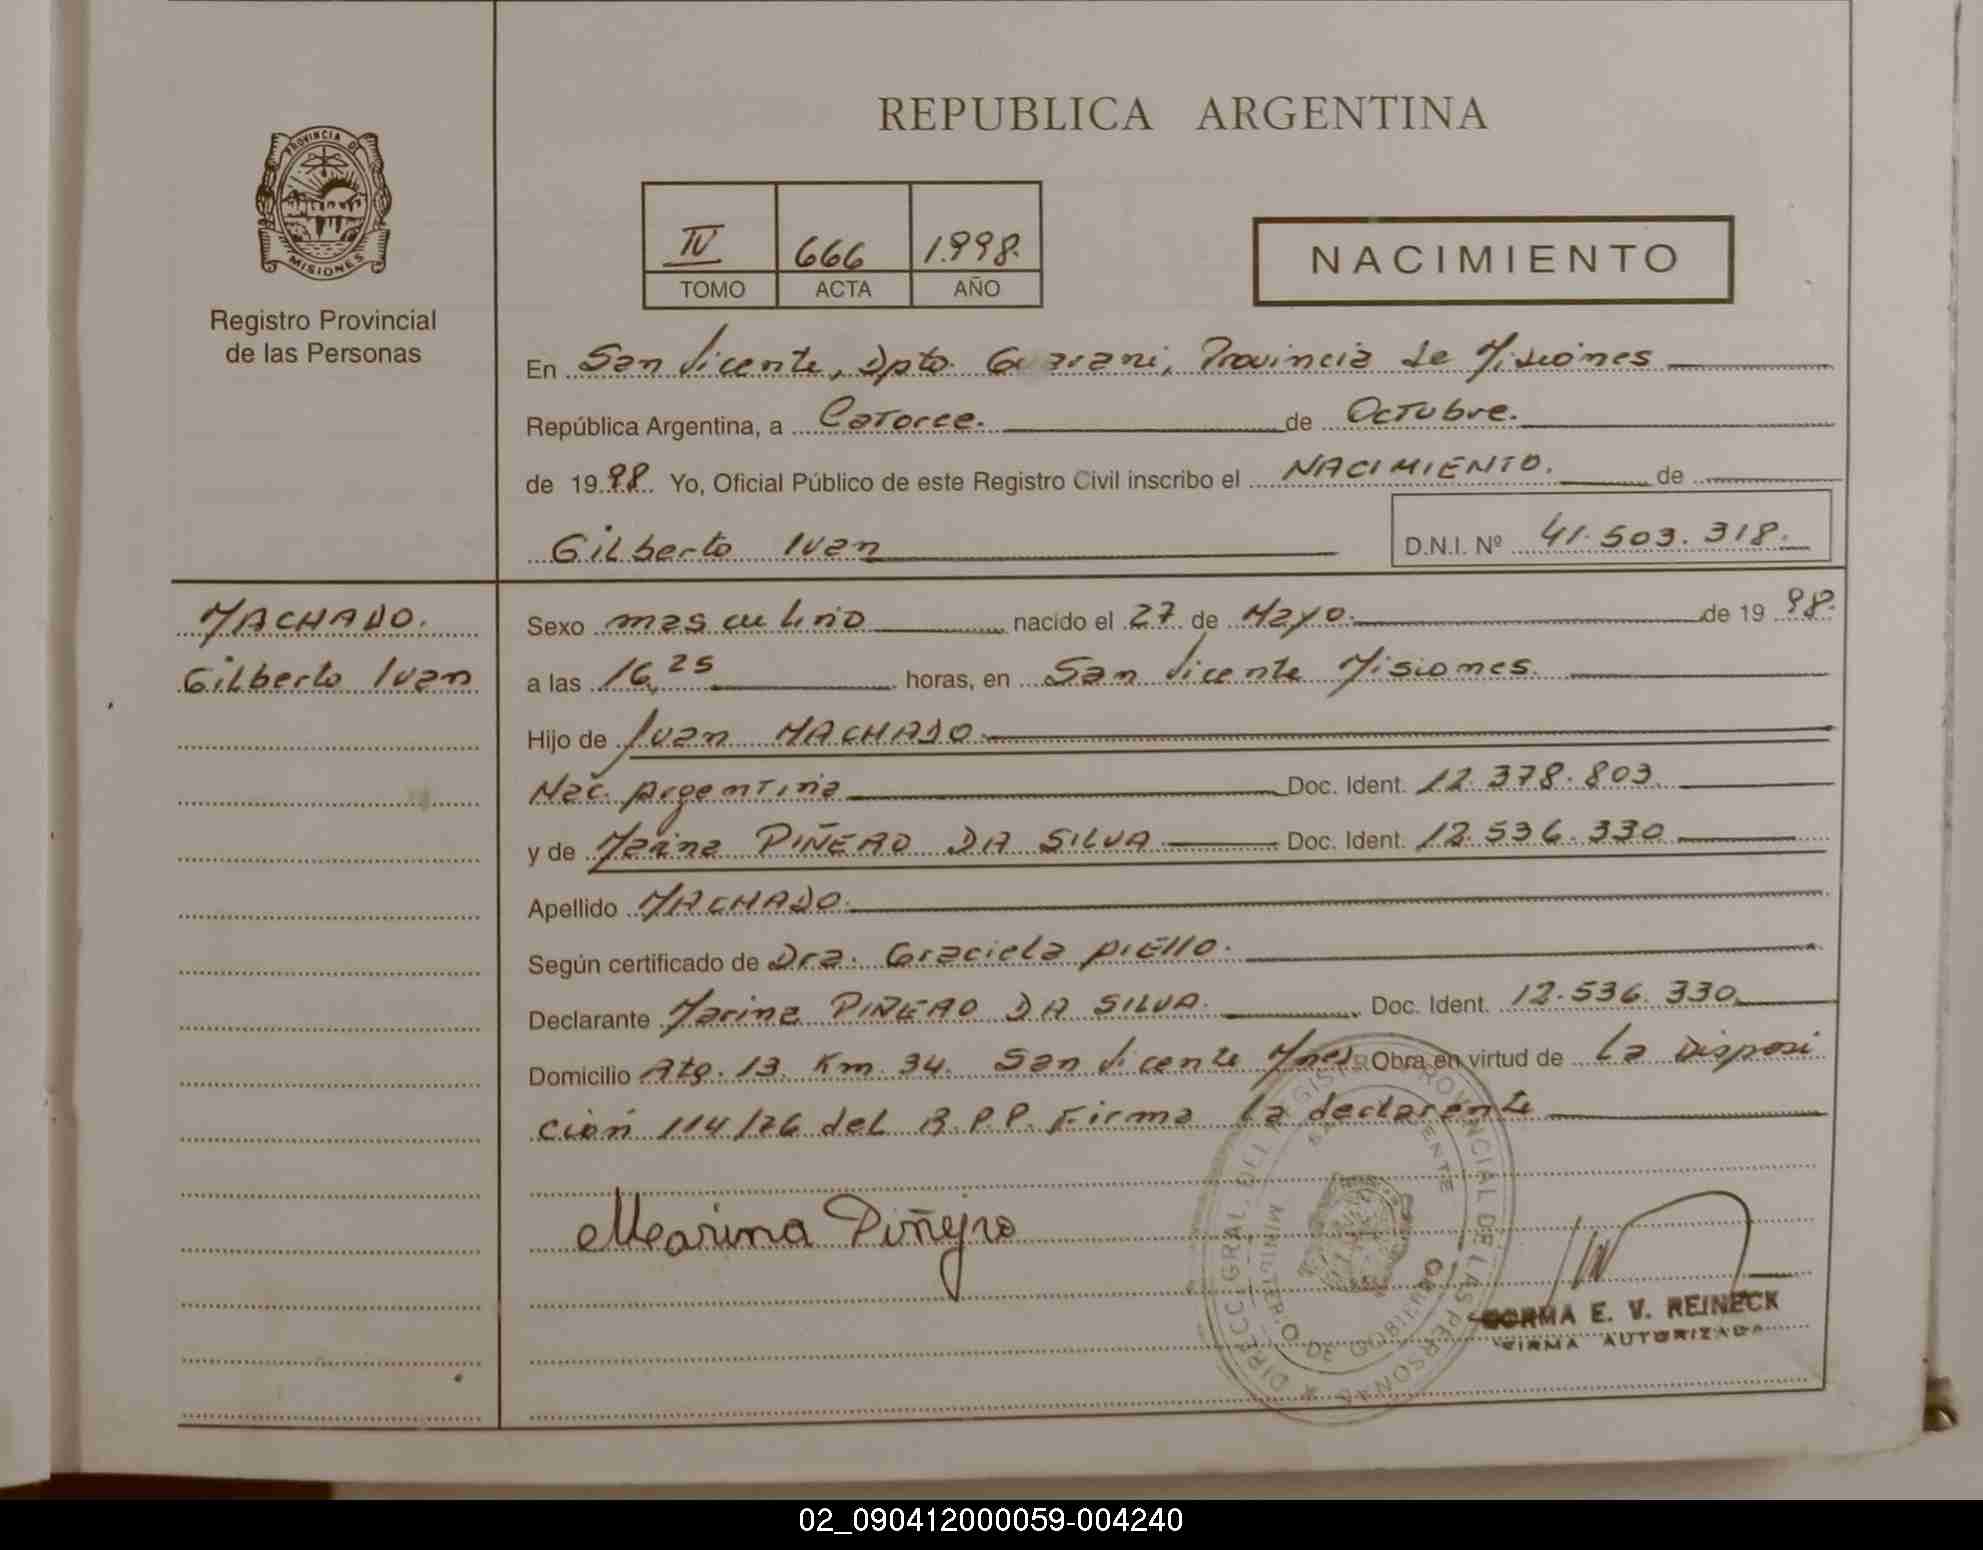 REPUBLICA ARGENTINA
PROVINCIA DE
MISIONES
Registro Provincial
de las Personas
IV 666 1.998.
TOMO ACTA AÑO
NACIMIENTO
En San Vicente, Dpto. Guarani, Provincia de Misiones
República Argentina, a Catorce. de Octubre.
de 1998. Yo, Oficial Público de este Registro Civil inscribo el NACIMIENTO. de
Gilberto Ivan D.N.I. Nº 41.503.318.
MACHADO.
Gilberto Ivan
Sexo masculino nacido el 27 de Mayo. de 1998.
a las 16,25 horas, en San Vicente Misiones.
Hijo de Juan MACHADO.
Nac. Argentina Doc. Ident. 12.378.803.
y de Marina PIÑERO DA SILVA Doc. Ident. 12.536.330
Apellido MACHADO.
Según certificado de Dra. Graciela PIEllO.
Declarante Marina PIÑERO DA SILVA. Doc. Ident. 12.536.330
Domicilio Ruta. 13. Km. 34. San Vicente Mnes. Obra en virtud de La Disposi
ción 114/76 del R.P.P. Firma la declarante
Marina Piñeyro
DIRECC. GRAL. DEL REGISTRO PROVINCIAL DE LAS PERSONAS
MINISTERIO DE GOBIERNO
NORMA E. V. REINECK
FIRMA AUTORIZADA
02_090412000059-004240